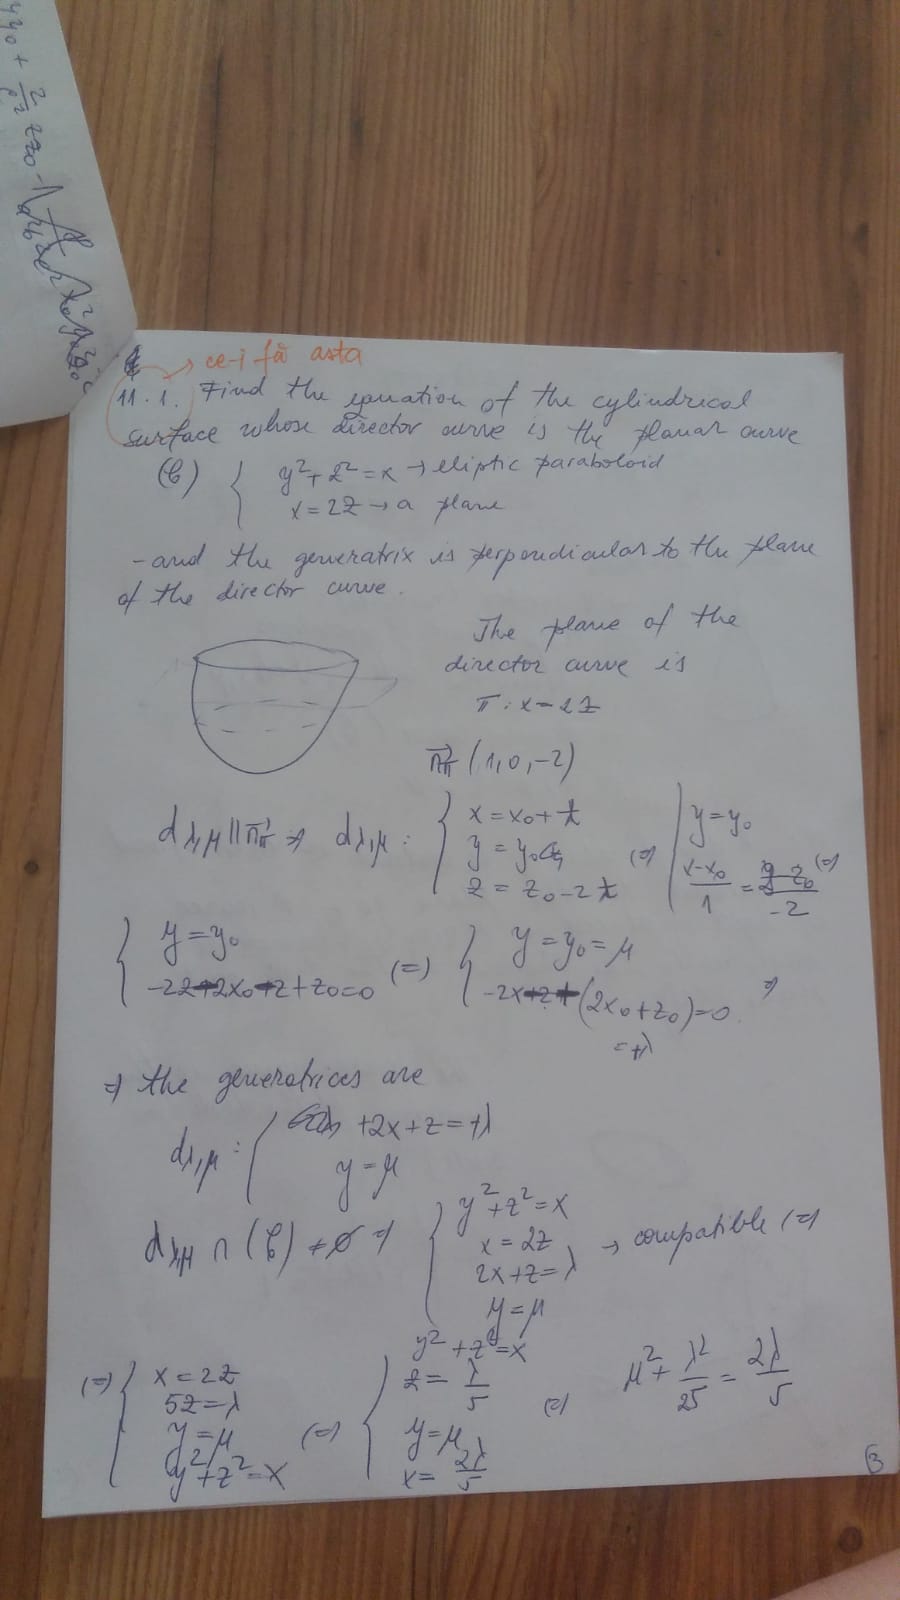 yy₀ + 2/c² zz₀ - 1
→ ce-i fă asta
11.1. Find the equation of the cylindrical
surface whose director curve is the planar curve
(C) { y² + z² = x → eliptic paraboloid
x = 2z → a plane
- and the generatrix is perpendicular to the plane
of the director curve.
The plane of the
director curve is
π: x = 2z
n⃗π (1, 0, -2)
dλ,μ ∥ n⃗π ⇒ dλ,μ : { x = x₀ + t
y = y₀
z = z₀ - 2t
(=) | y = y₀
(x - x₀)/1 = (z - z₀)/-2 (=)
{ y = y₀
(=) { y = y₀ = μ
(2x₀ + z₀) = 0 ⇒
= +λ
⇒ the generatrices are
dλ,μ : { +2x + z = +λ
y = μ
dλ,μ ∩ (C) ≠ ∅ ⇒ { y² + z² = x
x = 2z
2x + z = λ
y = μ
→ compatible (=)
(=) { x = 2z
5z = λ
y = μ
y² + z² = x
(=) { y² + z² = x
z = λ/5
y = μ
x = 2λ/5
(=) μ² + λ²/25 = 2λ/5